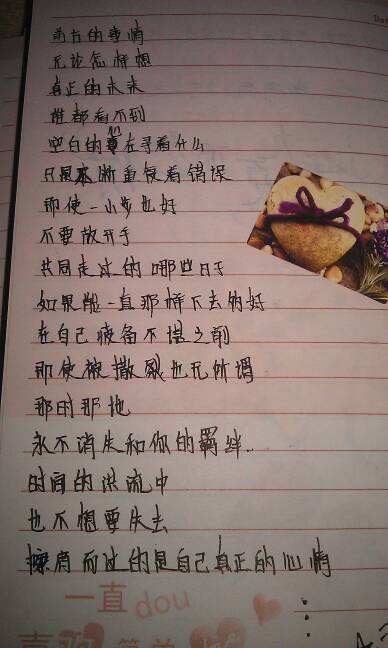 前方的事情
无论怎样想
真正的未来
谁都看不到
空白的心在寻着什么
只是不断重复着错误
即使一小步也好
不要放开手
共同走过的哪些日子
如果能一直那样下去的好
在自己疲备不堪之前
即使被撒裂也无所谓
那时那地
永不消失和你的羁绊..
时间的洪流中
也不想要失去
擦肩而过的是自己真正的心情
一直dou
喜欢 简单